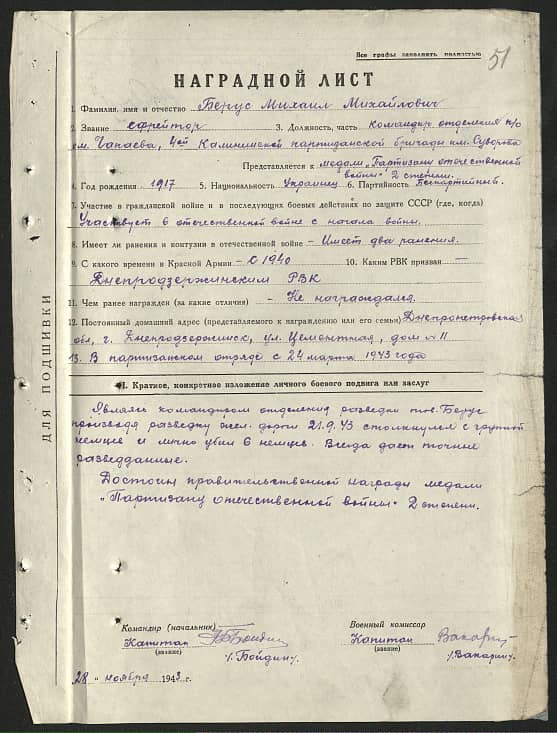 Все графы заполнять полностью
51
НАГРАДНОЙ ЛИСТ
1. Фамилия, имя и отчество Берус Михаил Михайлович
2. Звание ефрейтор 3. Должность, часть командир отделения п/о
им. Чапаева, 4ой Калининской партизанской бригады им. Суворова
Представляется к медали „Партизану отечественной
войны" 2 степени.
4. Год рождения 1917 5. Национальность Украинец 6. Партийность Беспартийный.
7. Участие в гражданской войне и в последующих боевых действиях по защите СССР (где, когда)
Участвует в отечественной войне с начала войны.
8. Имеет ли ранения и контузии в отечественной войне – Имеет два ранения.
9. С какого времени в Красной Армии – С 1940 10. Каким РВК призван —
Днепродзержинским РВК
11. Чем ранее награжден (за какие отличия) – Не награждался.
12. Постоянный домашний адрес (представляемого к награждению или его семьи) Днепропетровская
обл, г. Днепродзержинск, ул. Цементная, дом № 11
13. В партизанском отряде с 24 марта 1943 года
I. Краткое, конкретное изложение личного боевого подвига или заслуг
Являясь командиром отделения разведки тов. Берус
производя разведку жел. дороги 21.9.43 столкнулся с группой
немцев и лично убил 6 немцев. Всегда дает точные
разведданные.
Достоин правительственной награды медали
„Партизану отечественной войны" 2 степени.
Командир (начальник) Военный комиссар
Капитан Капитан
(звание) (звание)
/Бойдин/. /Вакарин/.
„28" ноября 1943 г.
ДЛЯ ПОДШИВКИ